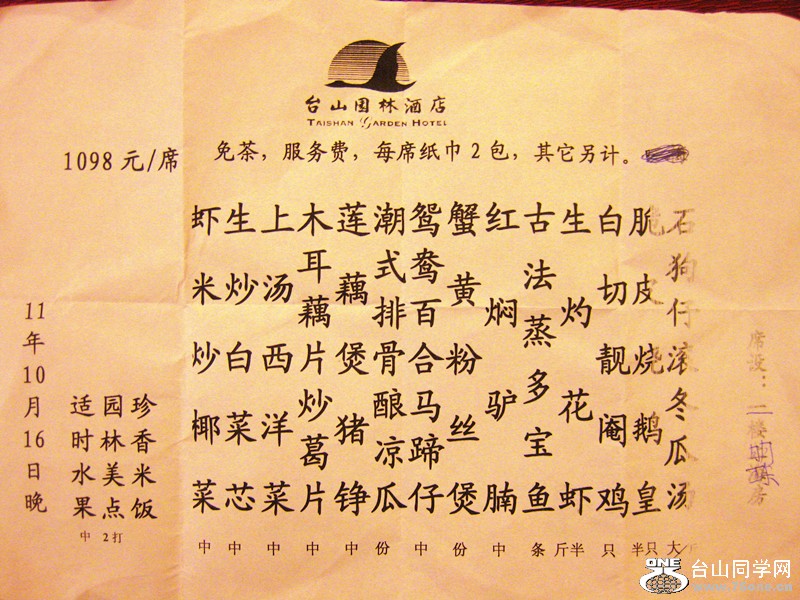 台山园林酒店
TAISHAN GARDEN HOTEL
1098 元/席
免茶，服务费，每席纸巾 2 包，其它另计。
席设：二楼
房
石狗仔滚冬瓜汤 大/
脆皮烧鹅皇 半只
白切靓阉鸡 只
生灼花虾 斤半
古法蒸多宝鱼 条
红焖驴腩 中
蟹黄粉丝煲 份
鸳鸯百合马蹄仔 中
潮式排骨酿凉瓜 份
莲藕煲猪铮 中
木耳藕片炒葛片 中
上汤西洋菜 中
生炒白菜芯 中
虾米炒椰菜 中
珍香米饭
园林美点 2打
适时水果 中
11年10月16日晚
ONE
台山同学网